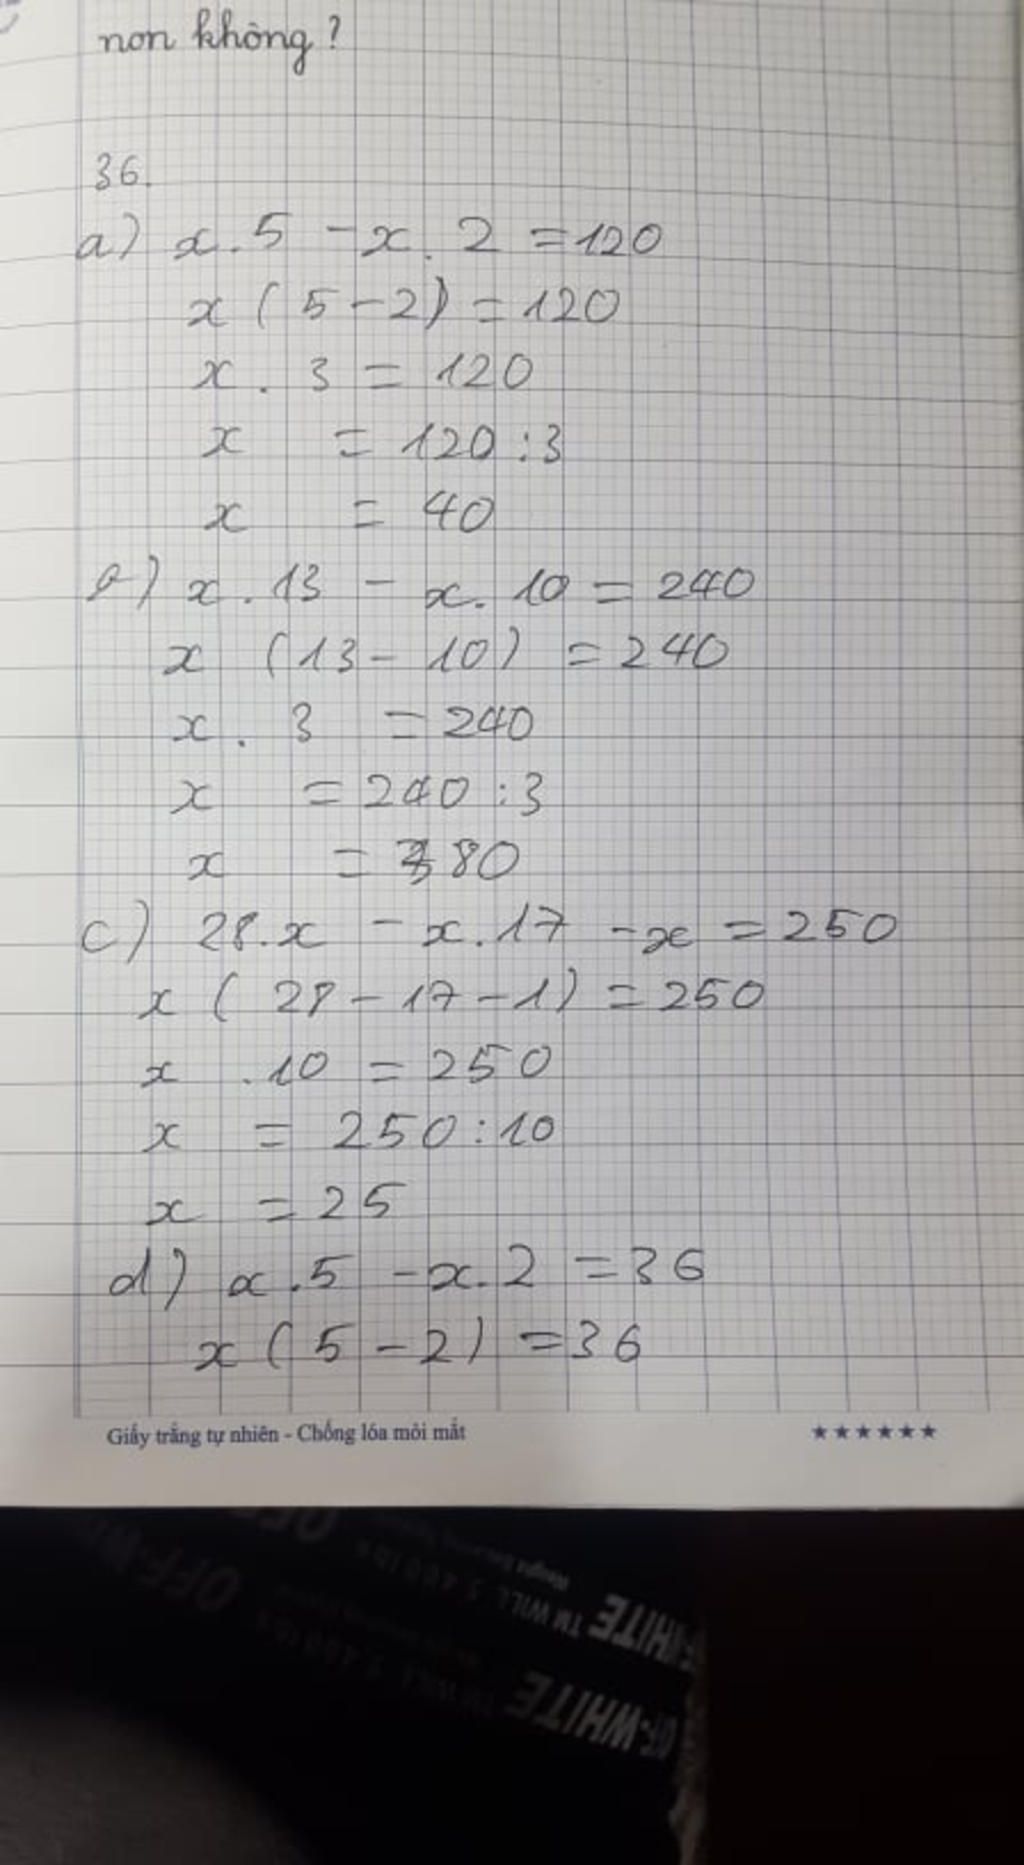 non không?
36.
a) x.5 - x.2 = 120
x(5-2) = 120
x.3 = 120
x = 120:3
x = 40
x.13 - x.10 = 240
x(13-10) = 240
x.3 = 240
x = 240:3
x = 80
c) 28.x - x.17 - x = 250
x(28-17-1) = 250
x.10 = 250
x = 250:10
x = 25
d) x.5 - x.2 = 36
x(5-2) = 36
Giấy trắng tự nhiên - Chống lóa mỏi mắt ★★★★★★
OFF-WHITE TM WILL 5.400 lbs OFF
OFF-WHITE